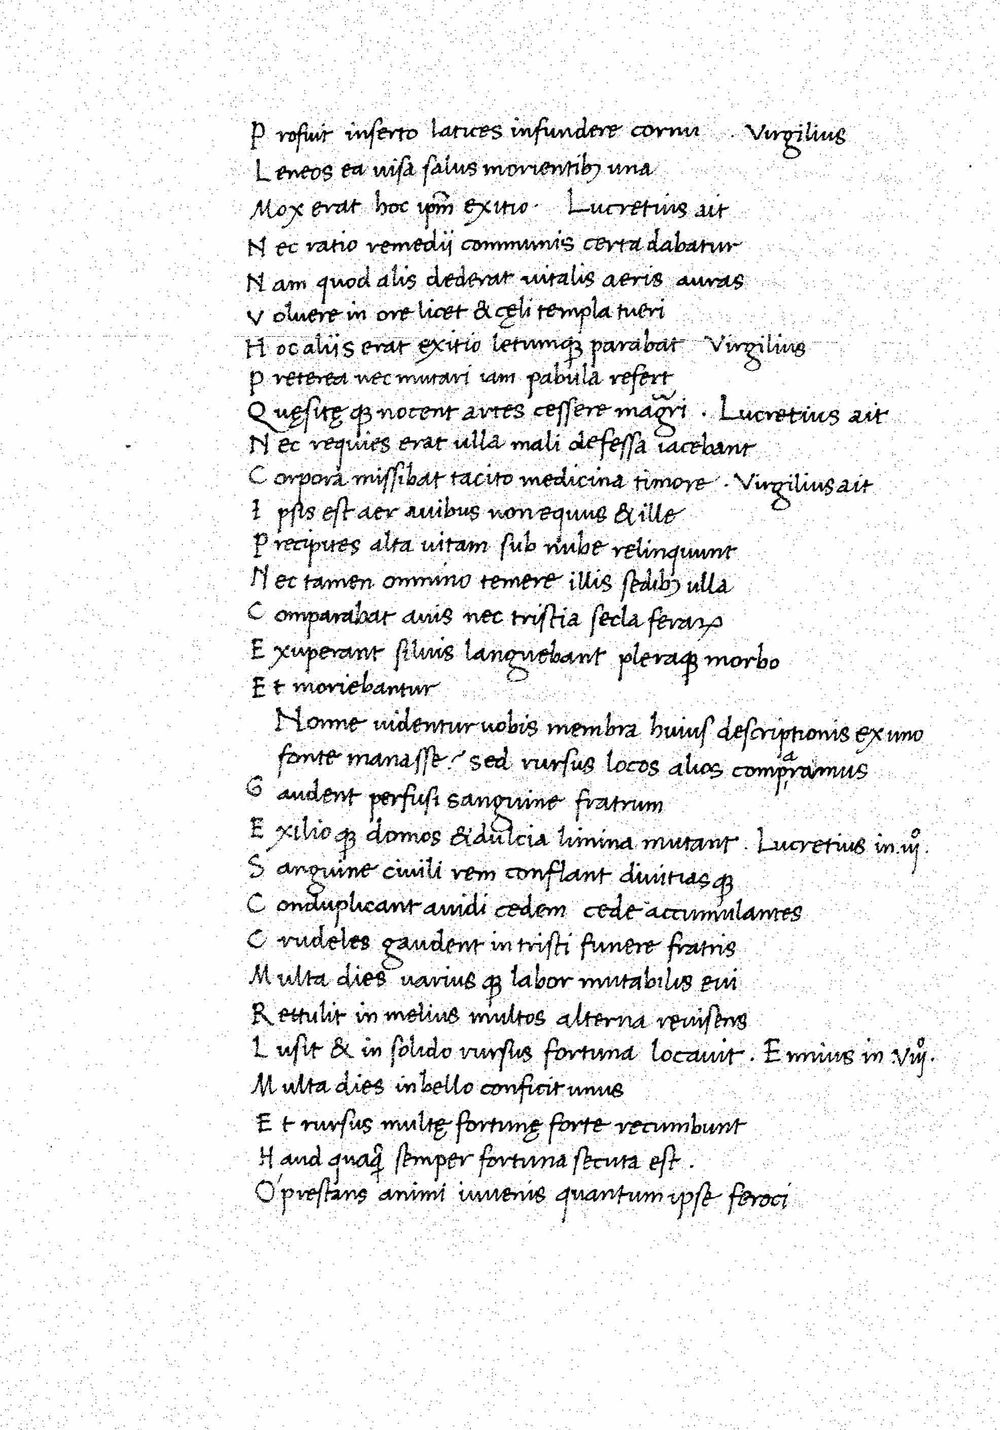 Profuit inserto latices infundere cornu . Virgilius
Leneos ea uisa salus morientibꝫ una
Mox erat hoc ipm̄ exitio · Lucretius ait
Nec ratio remedij communis certa dabatur
Nam quod alis dederat uitalis aeris auras
Voluere in ore licet & cęli templa tueri
Hoc aliis erat exitio letumqꝫ parabat Virgilius
Preterea nec mutari iam pabula refert
Quęsitęqꝫ nocent artes cessere mag̃ri . Lucretius ait
Nec requies erat ulla mali defessa iacebant
Corpora missibat tacito medicina timore . Virgilius ait
Ipsis est aer auibus non equus & ille
Precipites alta uitam sub nube relinquunt
Nec tamen omnino temere illis sedibꝫ ulla
Comparabat auis nec tristia secla feraꝝ
Exuperant siluis languebant pleraqꝫ morbo
Et moriebantur
Nonne uidentur uobis membra huius descriptionis ex uno
fonte manasse? sed rursus locos alios compᷓramus
Gaudent perfusi sanguine fratrum
Exilioqꝫ domos & dulcia limina mutant . Lucretius in .iijº.
Sanguine ciuili rem conflant diuitiasqꝫ
Conduplicant auidi cedem cede accumulantes
Crudeles gaudent in tristi funere fratris
Multa dies uariusqꝫ labor mutabilis eui
Rettulit in melius multos alterna reuisens
Lusit & in solido rursus fortuna locauit . Ennius in .Viijº.
Multa dies in bello conficit unus
Et rursus multę fortunę forte recumbunt
Haud quaq̃ semper fortuna secuta est .
O prestans animi iuuenis quantum ipse feroci